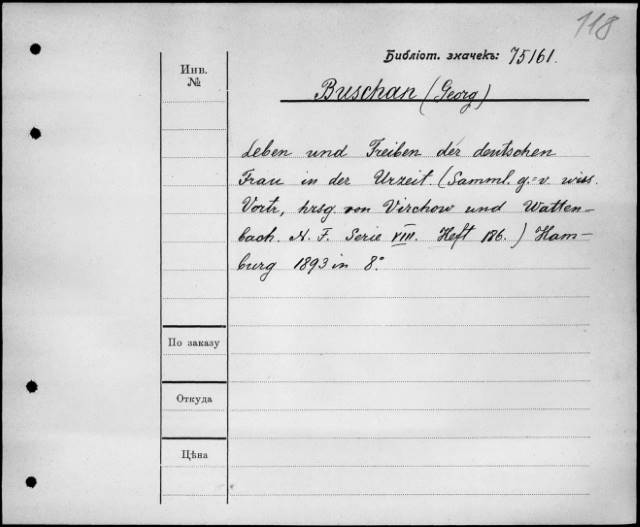 118
Библіот. значекъ: 75161.
Инв.
№
Buschan (Georg)
Leben und Treiben der deutschen
Frau in der Urzeit. (Samml. g.-v. wiss.
Vortr., hrsg. von Virchow und Watten-
bach. N. F. Serie VIII. Heft 186.) Ham-
burg 1893 in 8°.
По заказу
Откуда
Цѣна